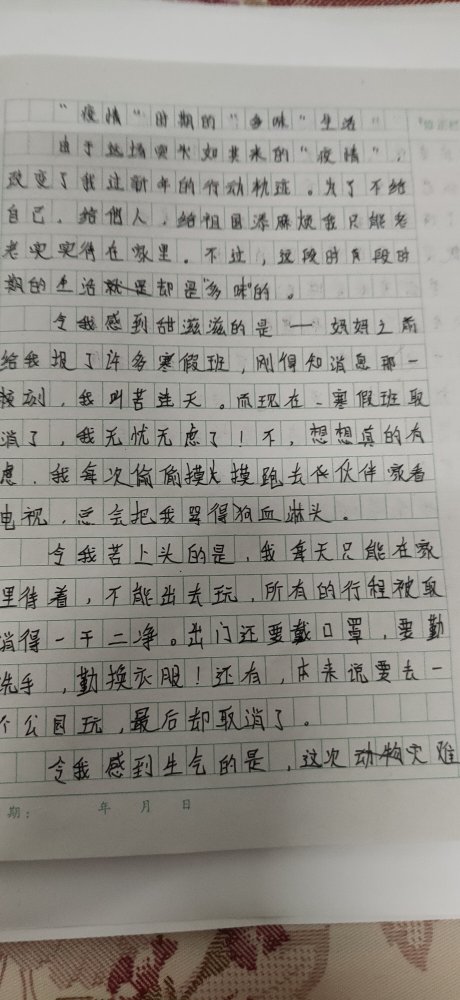 “疫情”时期的“多味”生活
由于这场突如其来的“疫情”，
改变了我过新年的行动轨迹。为了不给
自己、给他人、给祖国添麻烦我只能老
老实实待在家里。不过，这段时月段时
期的生活就是却是“多味”的。
令我感到甜滋滋的是——妈妈之前
给我报了许多寒假班，刚得知消息那一
刻，我叫苦连天。而现在，寒假班取
消了，我无忧无虑了！不，想想真的有
虑，我每次偷偷摸火摸跑去伙伴家看
电视，总会把我骂得狗血淋头。
令我苦上头的是，我每天只能在家
里待着，不能出去玩，所有的行程被取
消得一干二净。出门还要戴口罩，要勤
洗手，勤换衣服！还有，本来说要去一
个公园玩，最后却取消了。
令我感到生气的是，这次动物灾难
期： 年 月 日